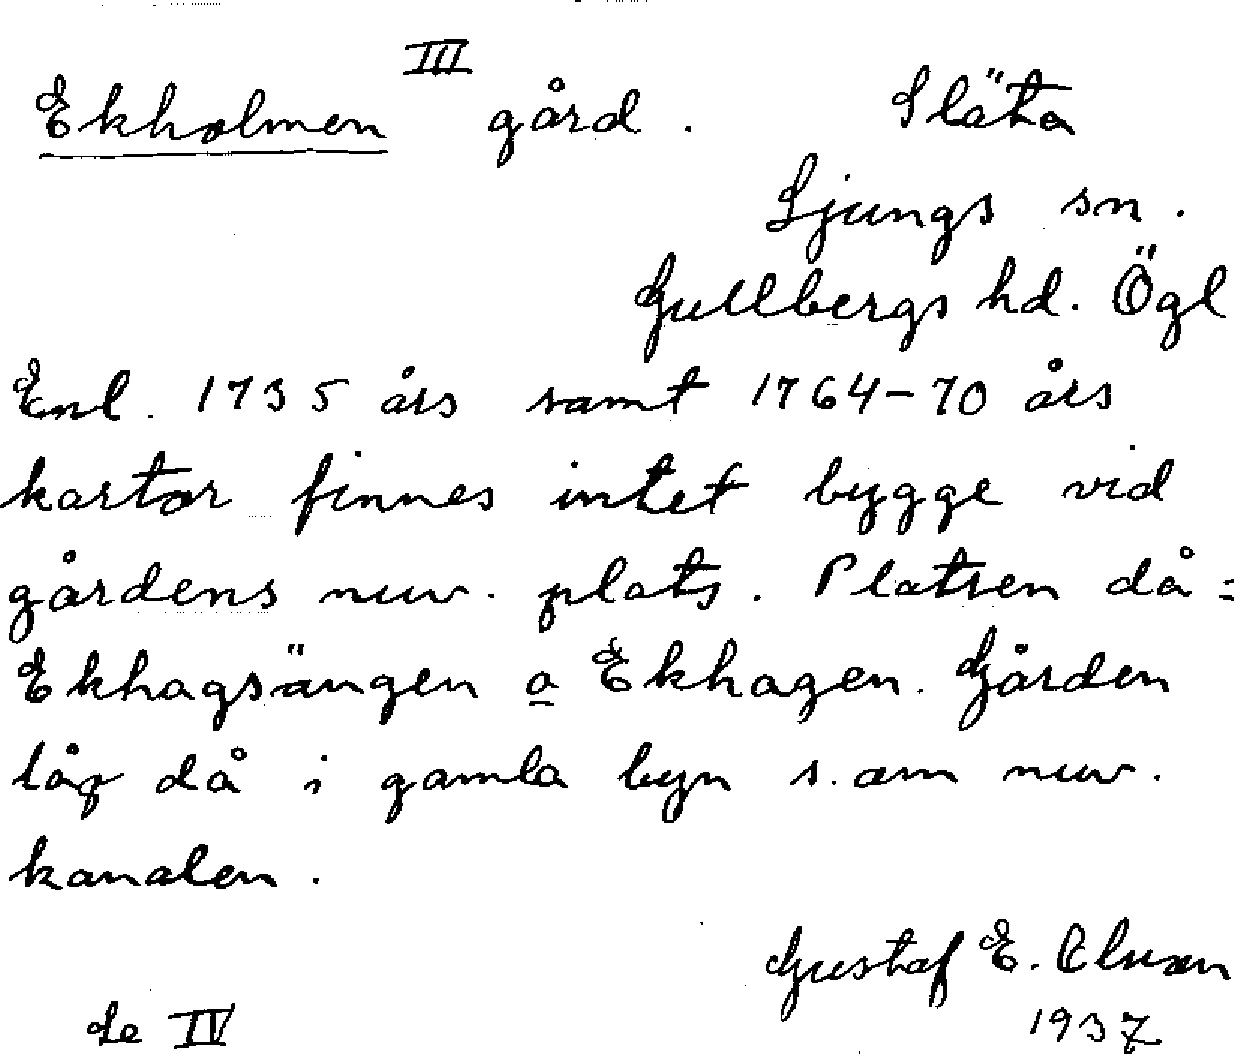 III
Ekholmen gård. Släta
Ljungs sn.
Gullbergs hd. Ögl
Enl. 1735 års samt 1764-70 års
kartor finnes intet bygge vid
gårdens nuv. plats. Platsen då =
Ekhagsängen o Ekhagen. Gården
låg då i gamla byn s. om nuv.
kanalen.
Gustaf E. Clusen
Se IV 1937